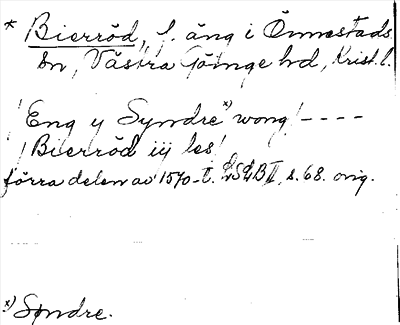 * Bierröd, f. äng i Önnestads
sn, Västra Göinge hd, Krist. l.
'Eng y Syndre *) wong' - - - -
'Bierröd iij les'
förra delen av 1570-t. LSÄB II, s. 68. orig.
*) Syndre.